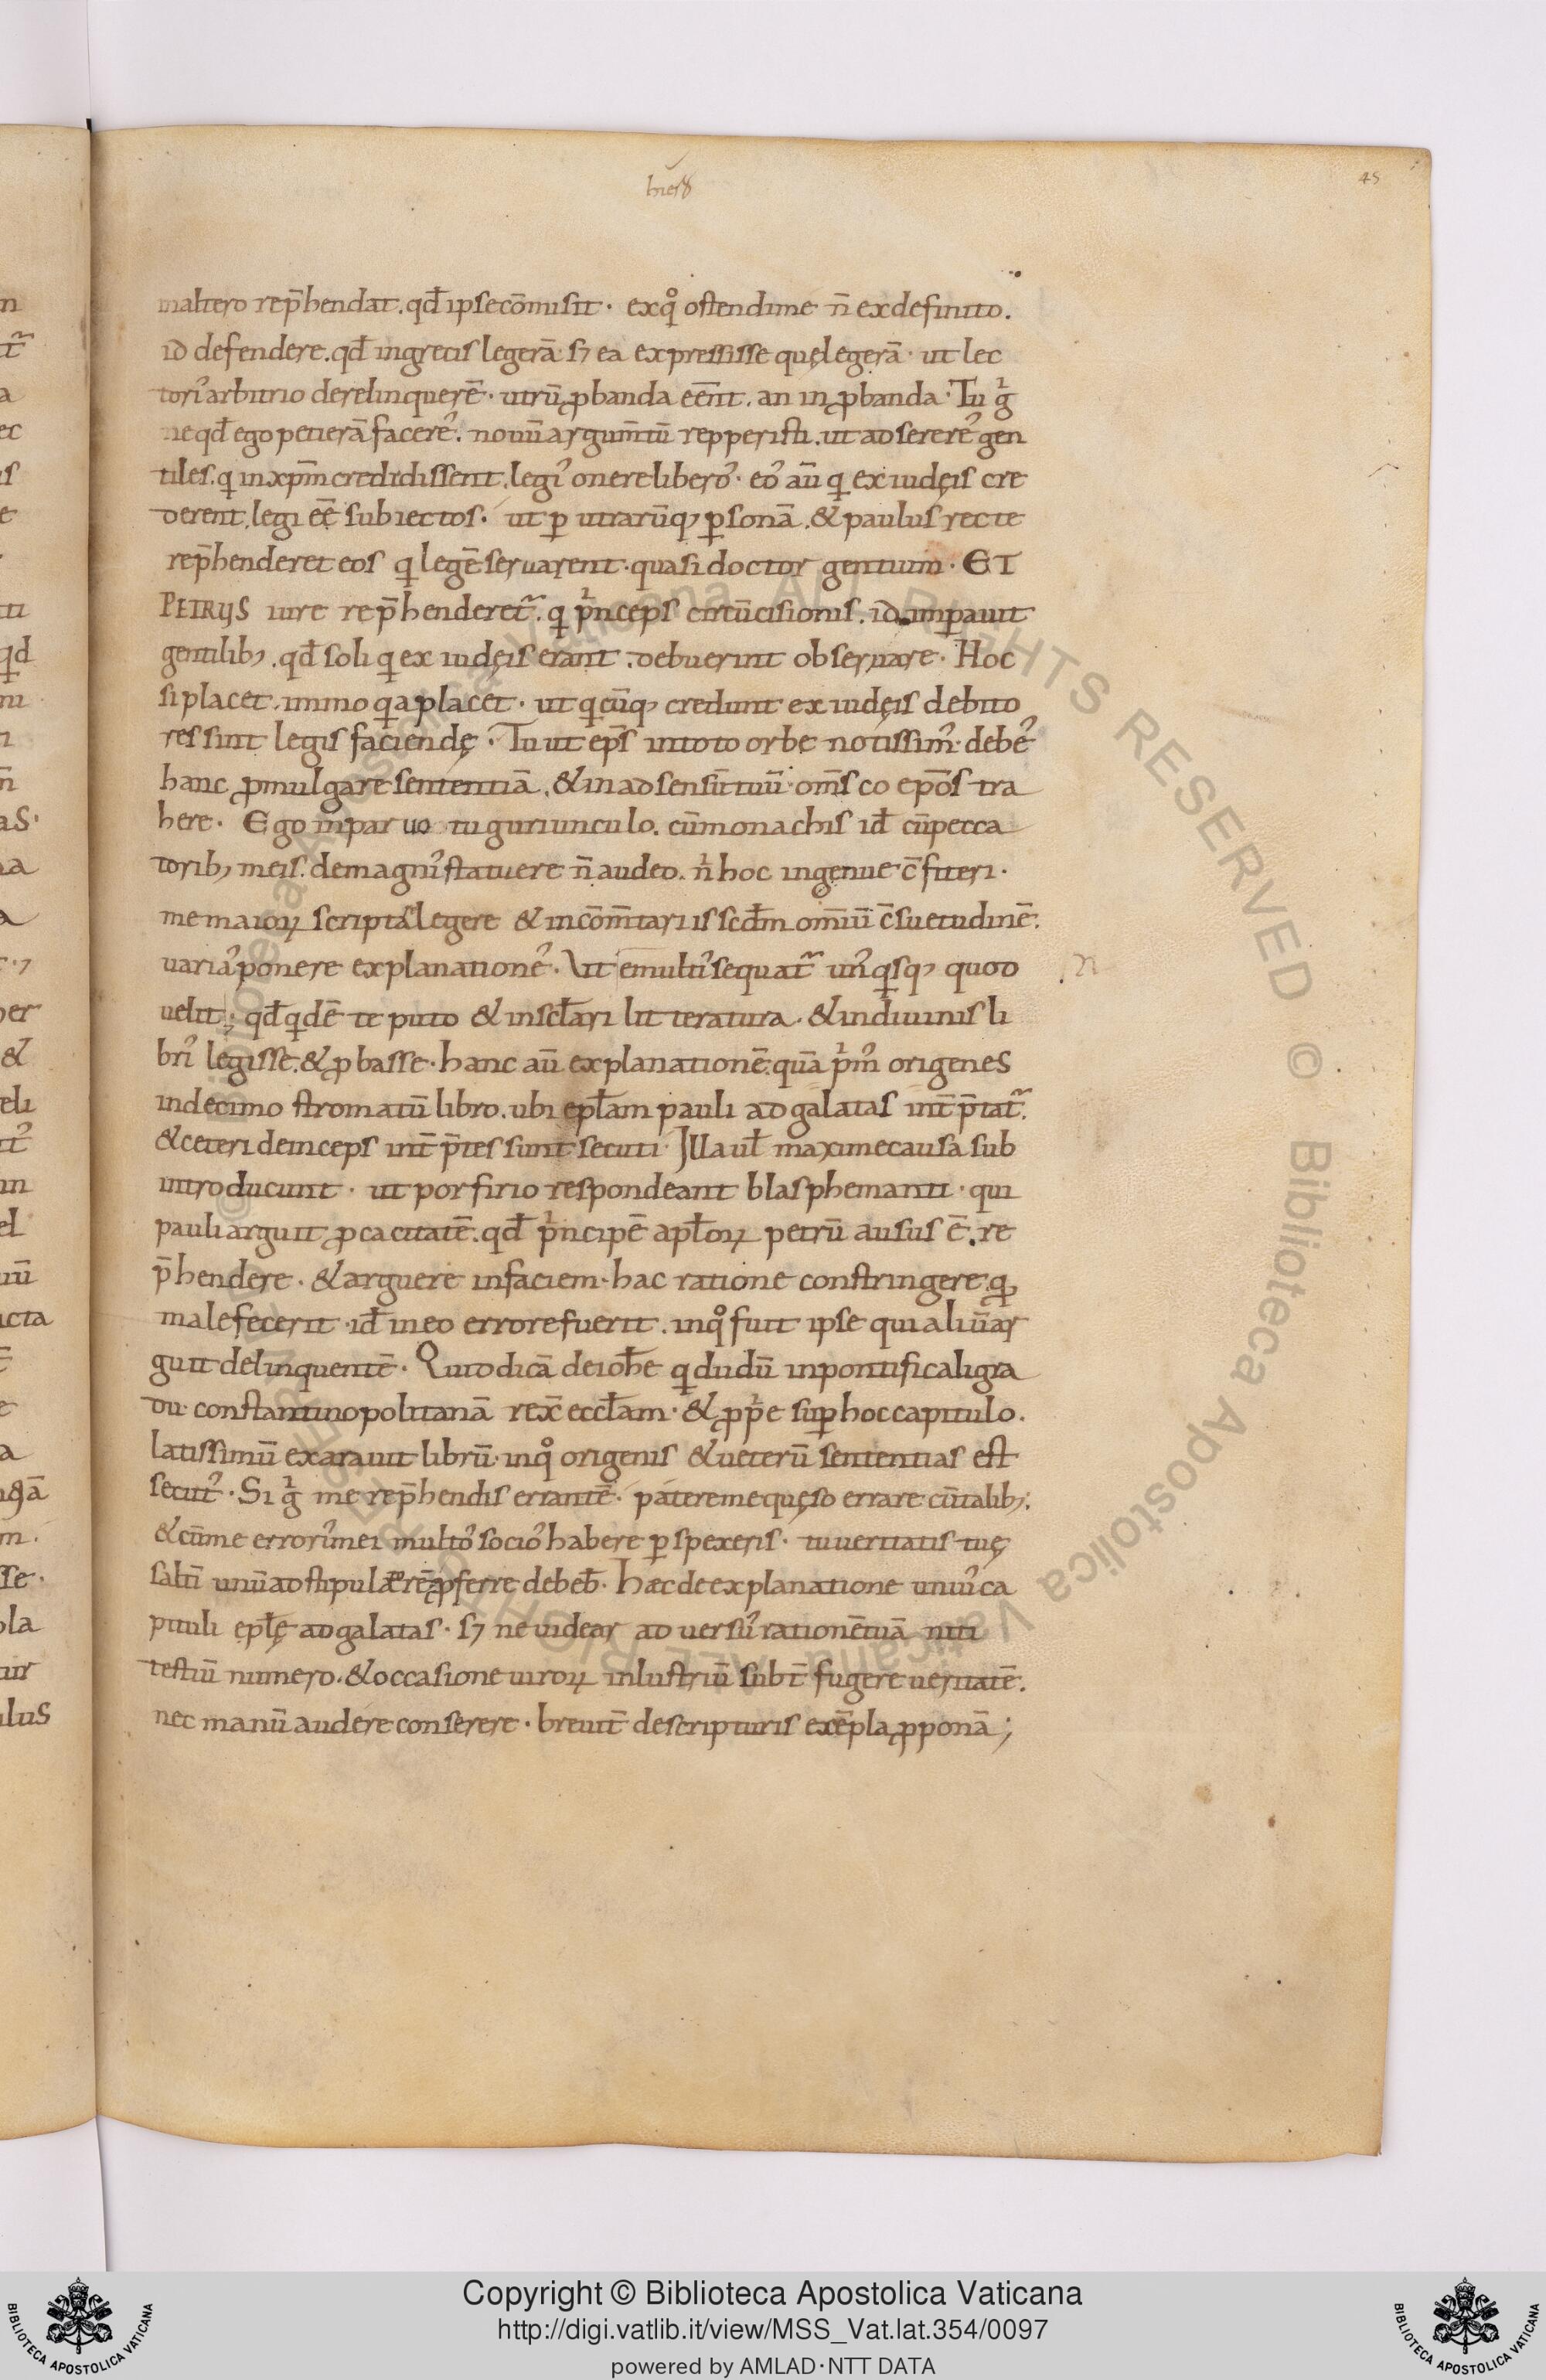 hieꝛ
45
inaltero rep̄hendat. qđ ipse cōmisit. ex qͦ ostendi me n̄ ex definito.
id defendere. qđ in grecis legerā. sꝫ ea expressisse quę legerā. ut lec
toriꝰ arbitrio derelinquerē. utrū ꝓbanda eēnt. an inꝓbanda. Tu gͥ
ne qđ ego petierā facereꝰ. nouū argum̄tū repperisti. ut adserereꝰ gen
tiles. q in xp̄m credidissent. legiꝰ onere liberoꝰ. eoꝰ aū q ex iudęis cre
derent, legi eē subiectos. ut ꝑ utrarūqꝫ ꝑsonā. & paulus recte
rep̄henderet eos q legē seruarent. quasi doctor gentium. ET
PETRUS iure rep̄henderet᷑. q pͥnceps circūcisionis. id imꝑauit
gentilibꝫ. qđ soli q ex iudęis erant. debuerint obseruare. Hoc
si placet. immo qa placet. ut qcūqꝫ credunt ex iudęis debito
res sint legis faciendę. Tu ut ep̄s in toto orbe notissimꝰ. debeꝰ
hanc ꝓmulgare sententiā. & in adsensū tuū. om̄s coep̄os tra
here. Ego in paruo tuguriunculo. cū monachis id̄ cū pecca
toribꝫ meis. de magniꝰ statuere n̄ audeo. nͥ hoc ingenue c̄fiteri.
me maioꝝ scripta legere & in cōm̄tariis scđm om̄iū c̄suetudinē.
uariaꝰ ponere explanationeꝰ. Ut e multiꝰ sequat᷑ unꝰqsqꝫ quod
uelit; qđ qdē te puto & in scłari litteratura. & in diuinis li
briꝰ legisse. & ꝓbasse. hanc aū explanationē. quā pͥmꝰ origenes
in decimo stromatū libro. ubi epłam pauli ad galatas int̄p̄tat᷑.
& ceteri deinceps int̄p̄tes sunt secuti. Illa uł maxime causa sub
introducunt. ut porfirio respondeant blasphemanti. qui
pauli arguit ꝓcacitatē. qđ pͥncipē apłoꝝ petrū ausus ē. re
p̄hendere. & arguere in faciem. hac ratione constringere. qꝫ
male fecerit. id̄ in eo errore fuerit. in qͦ fuit ipse qui aliū ar
guit delinquentē. Quid dicā de ioħe q dudū in pontificali gra
du. constantinopolitanā rex̄ eccłam. & ꝓpͥe suꝑ hoc capitulo.
latissimū exarauit librū. in qͦ origenis & ueterū sententias est
secutꝰ. Si gͥ me rep̄hendis errantē. patere me quęso errare cū talibꝫ.
& cū me erroriꝰ mei multoꝰ socioꝰ habere ꝑspexeris. tu ueritatis tuę
saltī unū adstipulatorē ꝓferre debeƀ. Hæc de explanatione uniꝰ ca
pituli epłę ad galatas. sꝫ ne uidear aduersū rationē tuā niti
testiū numero. & occasione uiroꝝ inlustriū subt̄fugere ueritatē.
nec manū audere conserere. breuit̄ de scripturis exēpla ꝓponā;
Copyright © Biblioteca Apostolica Vaticana
http://digi.vatlib.it/view/MSS_Vat.lat.354/0097
powered by AMLAD·NTT DATA